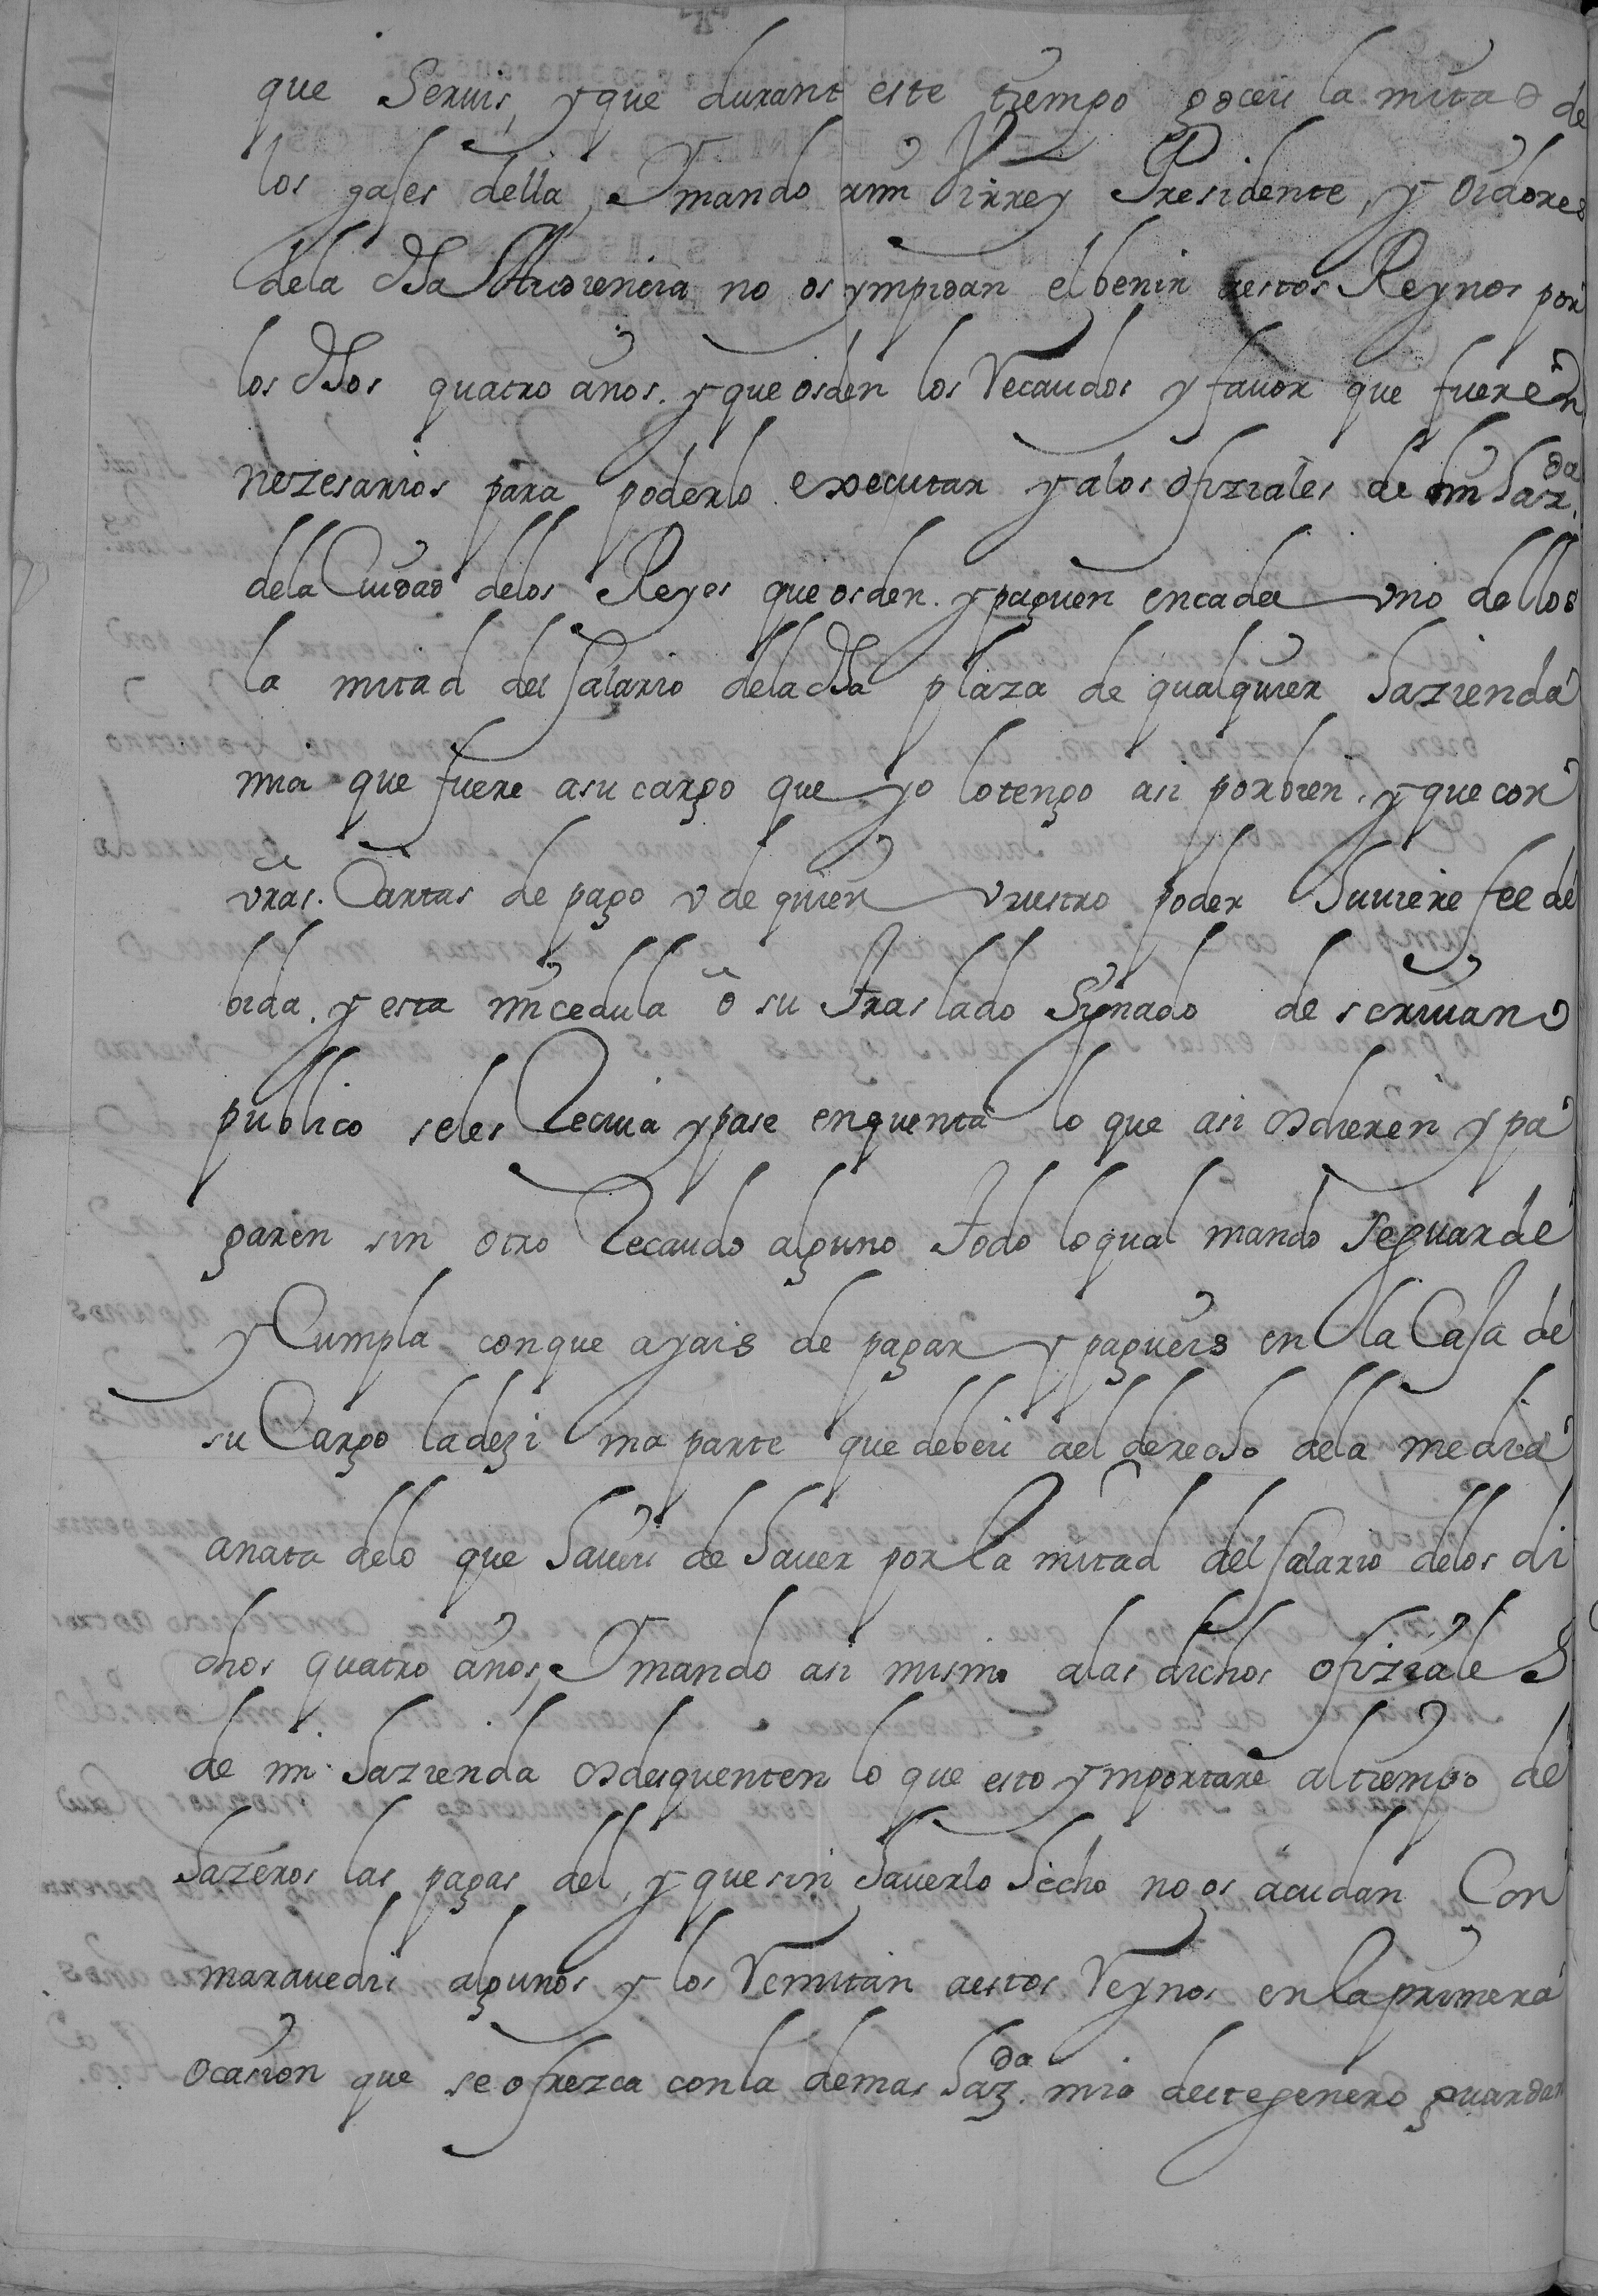 que Seruis, y que durante este tiempo goceis la mitad de
los gajes della, Y mando a mi Virrey Presidente, y oidores
dela dha Audiencia no os ympidan el benir a estos Reynos por
los dhos quatro años. y que os den los Recaudos y fauor que fueren
nezesarios para poderlo executar y a los ofiziales de mi haz.da
dela Ciudad delos Reyes que os den. y paguen en cada vno dellos
la mitad del salario dela dha plaza de qualquier hazienda
mia que fuere a su cargo que yo lo tengo asi por bien. y que con
vras. Cartas de pago v de quien vuestro poder huuiere fee de
bida. y esta mi cedula o su traslado Signado de scriuano
publico se les Reciua y pase en quenta lo que asi os dieren y pa
garen sin otro Recaudo alguno todo lo qual mando se guarde
y Cumpla con que ayais de pagar y pagueis en la Casa de
su Cargo la dezi ma parte que debeis del derecho dela media
anata delo que haueis de hauer por la mitad del salario delos di
chos quatro años, Y mando asi mismo a las dichos ofiziales
de mi hazienda os desquenten lo que esto ymportare al tiempo de
hazeros las pagas del, y que sin hauerlo hecho no os acudan Con
marauedis algunos y los Remitan a estos Reynos en la primera
ocasion que se ofrezca con la demas haz.da mia deste genero guardan